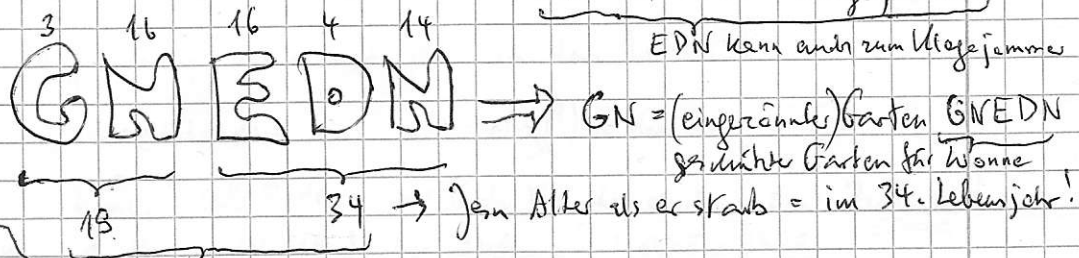 EDN kann auch zum Klagejammer
3 16 16 4 14
GN EDN → GN = (eingezäunter) Garten GNEDN
geschützter Garten für Wonne
19 34 → Jesu Alter als er starb = im 34. Lebensjahr!